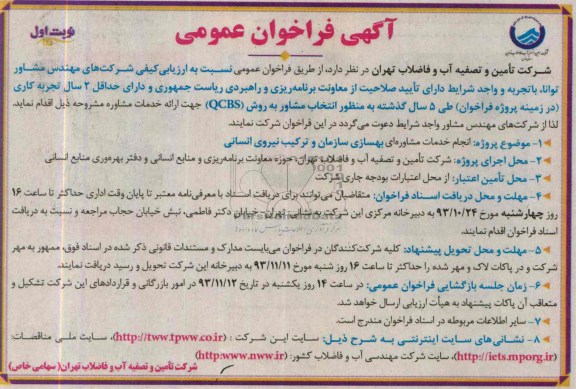 آگهی فراخوان عمومی
نوبت اول
شرکت تأمین و تصفیه آب و فاضلاب تهران در نظر دارد، از طریق فراخوان عمومی نسبت به ارزیابی کیفی شرکت‌های مهندس مشاور
توانا، باتجربه و واجد شرایط دارای تأیید صلاحیت از معاونت برنامه‌ریزی و راهبردی ریاست جمهوری و دارای حداقل ۲ سال تجربه کاری
(در زمینه پروژه فراخوان) طی ۵ سال گذشته به منظور انتخاب مشاور به روش (QCBS) جهت ارائه خدمات مشاوره مشروحه ذیل اقدام نماید.
لذا از شرکت‌های مهندس مشاور واجد شرایط دعوت می‌گردد در این فراخوان شرکت نمایند.
۱- موضوع پروژه: انجام خدمات مشاوره‌ای بهسازی سازمان و ترکیب نیروی انسانی
۲- محل اجرای پروژه: شرکت تأمین و تصفیه آب و فاضلاب تهران، حوزه معاونت برنامه‌ریزی و منابع انسانی و دفتر بهره‌وری منابع انسانی
۳- محل تأمین اعتبار: از محل اعتبارات بودجه جاری شرکت
۴- مهلت و محل دریافت اسناد فراخوان: متقاضیان می‌توانند برای دریافت اسناد با معرفی‌نامه معتبر تا پایان وقت اداری حداکثر تا ساعت ۱۶
روز چهارشنبه مورخ ۹۳/۱۰/۲۴ به دبیرخانه مرکزی این شرکت به نشانی: تهران، خیابان دکتر فاطمی، نبش خیابان حجاب مراجعه و نسبت به دریافت
اسناد فراخوان اقدام نمایند.
۵- مهلت و محل تحویل پیشنهاد: کلیه شرکت‌کنندگان در فراخوان می‌بایست مدارک و مستندات قانونی ذکر شده در اسناد فوق، ممهور به مهر
شرکت و در پاکات لاک و مهر شده را حداکثر تا ساعت ۱۶ روز شنبه مورخ ۹۳/۱۱/۱۱ به دبیرخانه این شرکت تحویل و رسید دریافت نمایند.
۶- زمان جلسه بازگشایی فراخوان عمومی: در ساعت ۱۴ روز یکشنبه در تاریخ ۹۳/۱۱/۱۲ در امور بازرگانی و قراردادهای این شرکت تشکیل و
متعاقب آن پاکات پیشنهاد به هیأت ارزیابی ارسال خواهد شد.
۷- سایر اطلاعات مربوطه در اسناد فراخوان مندرج است.
۸- نشانی‌های سایت اینترنتی به شرح ذیل: سایت این شرکت : (http://tww.tpww.co.ir)، سایت ملی مناقصات:
(http://iets.mporg.ir)، سایت شرکت مهندسی آب و فاضلاب کشور: (http:www.nww.ir)
شرکت تأمین و تصفیه آب و فاضلاب تهران( سهامی خاص)